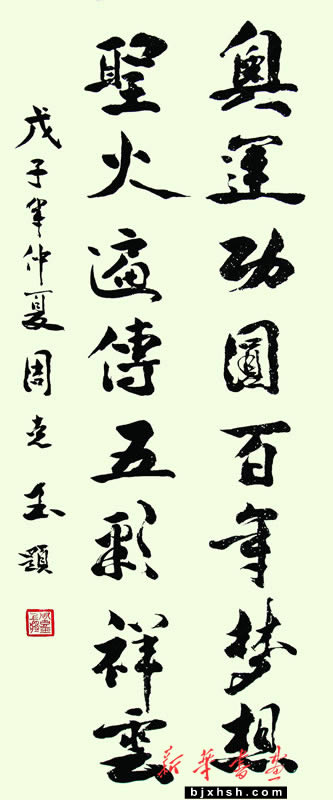 奥運功圓百年梦想
聖火遍傳五彩祥雲
戊子年仲夏周克玉題
新華書画
www.
bjxhsh.com